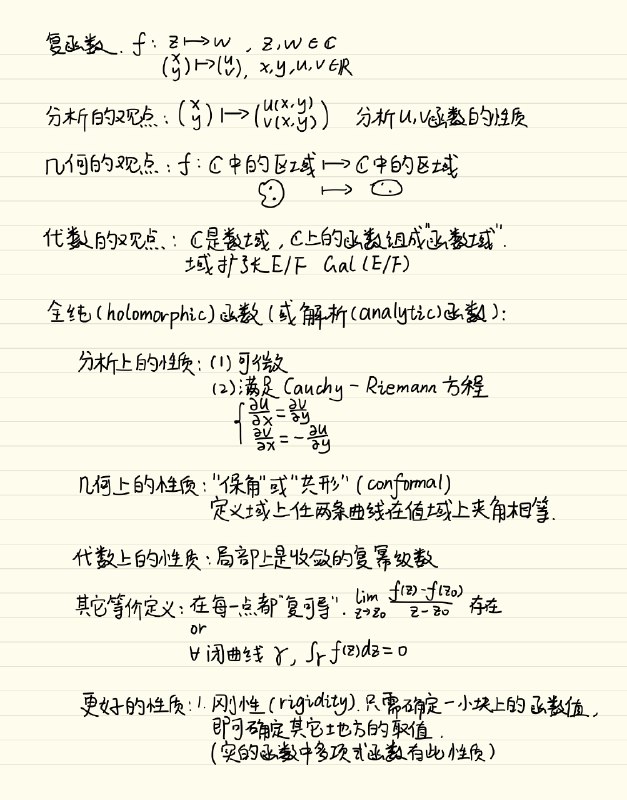 复函数. f: z ↦ w , z, w ∈ ℂ
(x y) ↦ (u v), x, y, u, v ∈ ℝ
分析的观点: (x y) ↦ (u(x,y) v(x,y)) 分析u,v函数的性质
几何的观点: f: ℂ中的区域 ↦ ℂ中的区域
↦
代数的观点: ℂ是数域, ℂ上的函数组成"函数域".
域扩张E/F Gal(E/F)
全纯(holomorphic)函数(或解析(analytic)函数):
分析上的性质: (1) 可微
(2) 满足 Cauchy-Riemann 方程
{ ∂u/∂x = ∂v/∂y
∂v/∂x = -∂u/∂y
几何上的性质: "保角"或"共形"(conformal)
定义域上任两条曲线在值域上夹角相等.
代数上的性质: 局部上是收敛的复幂级数
其它等价定义: 在每一点都"复可导". lim z→z₀ (f(z)-f(z₀))/(z-z₀) 存在
or
∀闭曲线 γ, ∫γ f(z)dz = 0
更好的性质: 1. 刚性(rigidity). 只需确定一小块上的函数值,
即可确定其它地方的取值.
(实的函数中多项式函数有此性质)